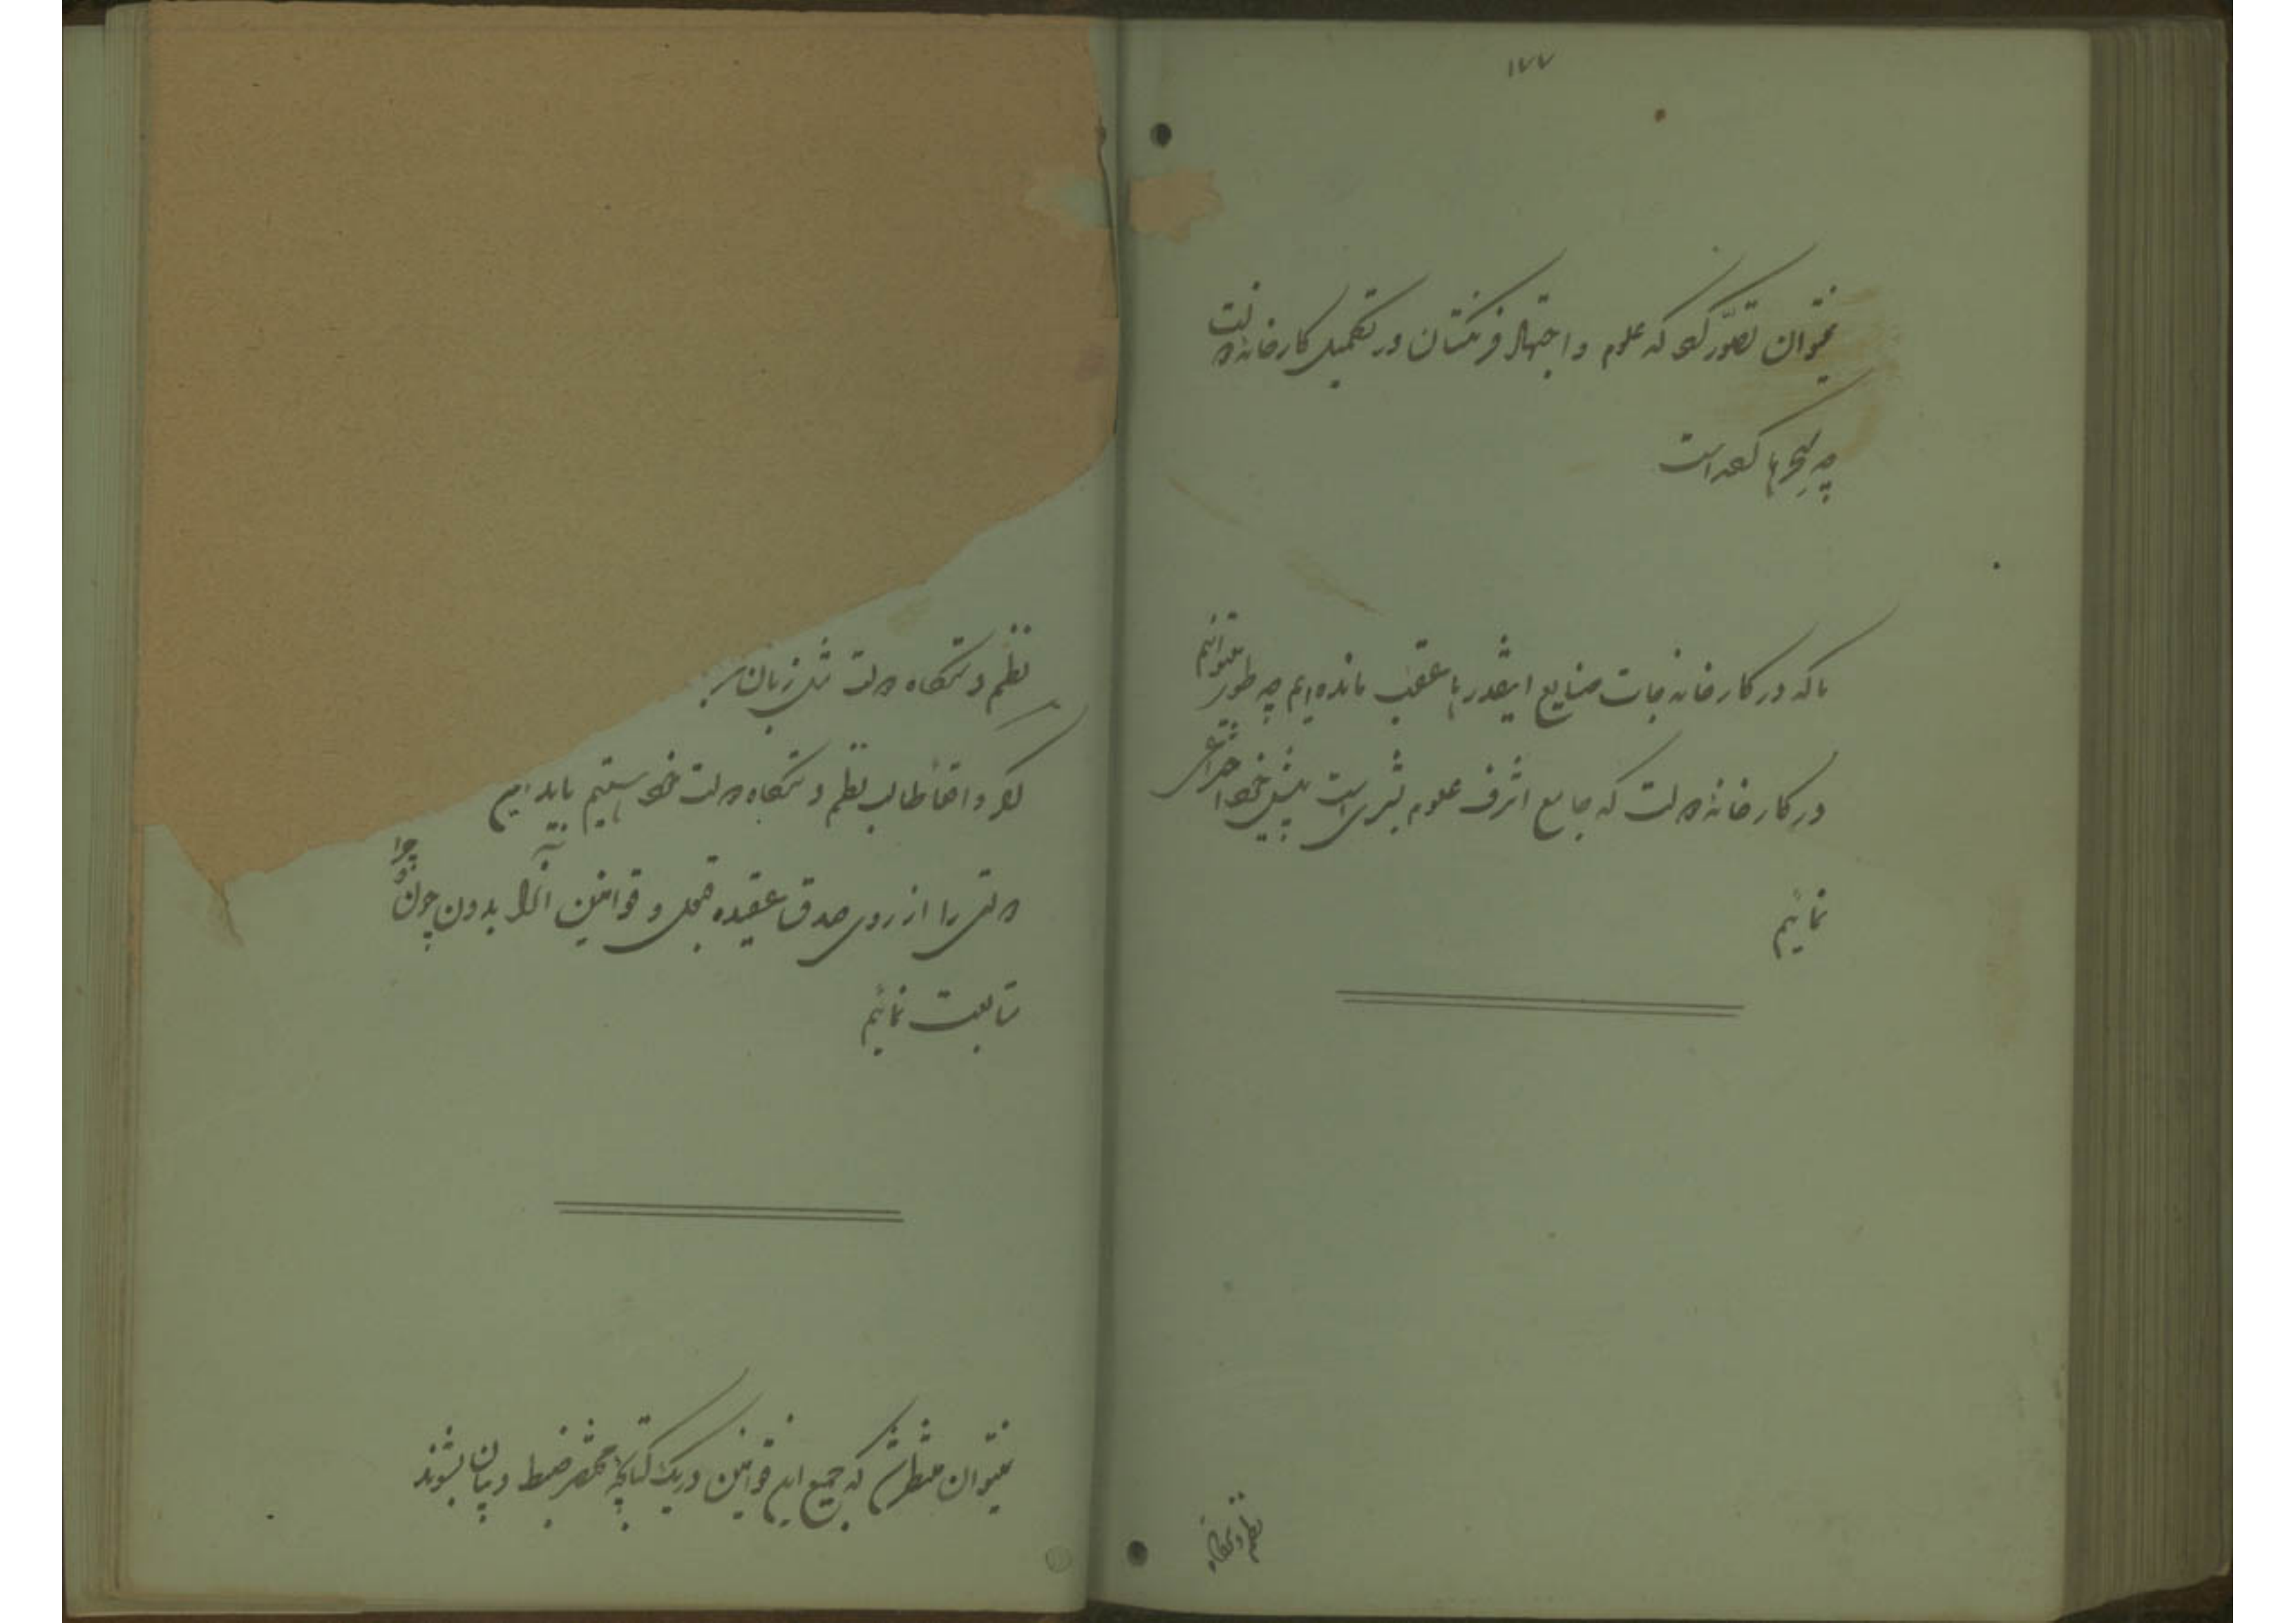 ۱۷۷
نمیتوان تصوّر کرد که علوم و اجتهاد فرنگستان در تکمیل کارخانه دولت
چه معجزها کرده است
ما که در کارخانه جات صنایع اینقدرها عقب مانده‌ایم چه طور میتوانیم
در کارخانهٔ دولت که جامع اشرف علوم بشری است پیش خود اختراعی
نمائیم
نظم دستگاه
نظم دستگاه دولت مثل زبان
اگر واقعاً طالب نظم دستگاه دولت خود هستیم باید این
دولتی را از روی صدق عقیده قبول و قوانین آنها را بدون چون و چرا
متابعت نمائیم
نمیتوان منتظر شد که جمیع این قوانین در یک کتابچهٔ مختصر ضبط و بیان بشوند